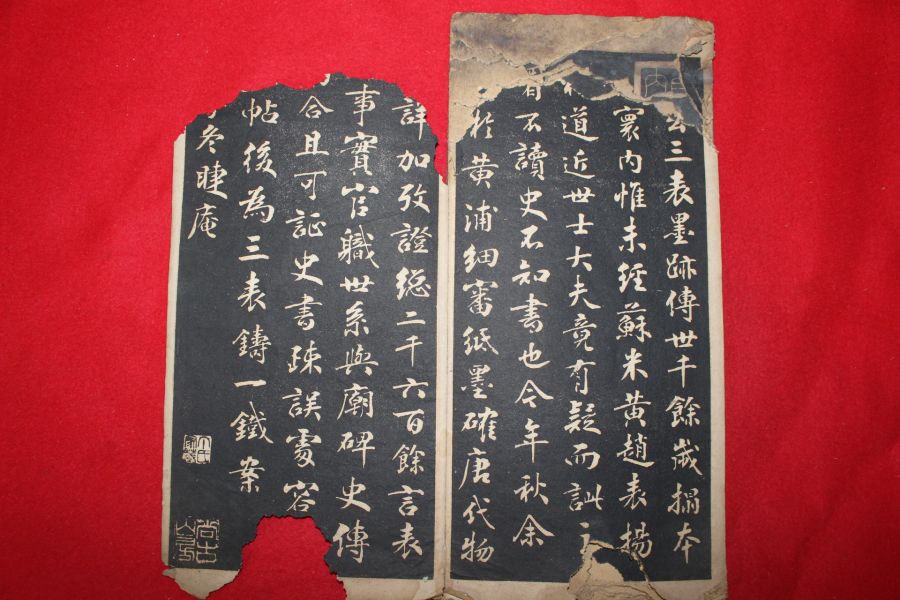 三表墨跡傳世千餘歲搨本
寰内惟未經蘇米黃趙表揚
道近世士大夫竟有疑而訕
不讀史不知書也今年秋余
於黃浦細審紙墨確唐代物
詳加攷證總二千六百餘言表
事實官職世系與廟碑史傳
合且可証史書疎誤處容
帖後為三表鑄一鐵案
冬睫庵
尚古